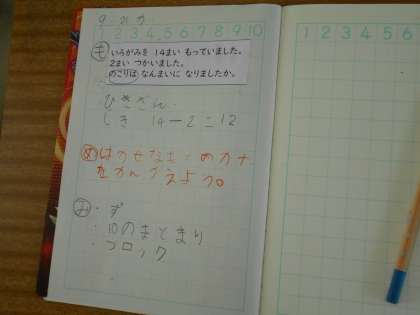 9.21 ⽊
1 2 3 4 5 6 7 8 9 10
も
いろがみを 14まい もっていました。
2まい つかいました。
のこりは なんまいに なりましたか。
ひきざん
しき 14-2=12
め
かんがえよう。
み
・ず
・10のまとまり
・ブロック
1 2 3 4 5 6